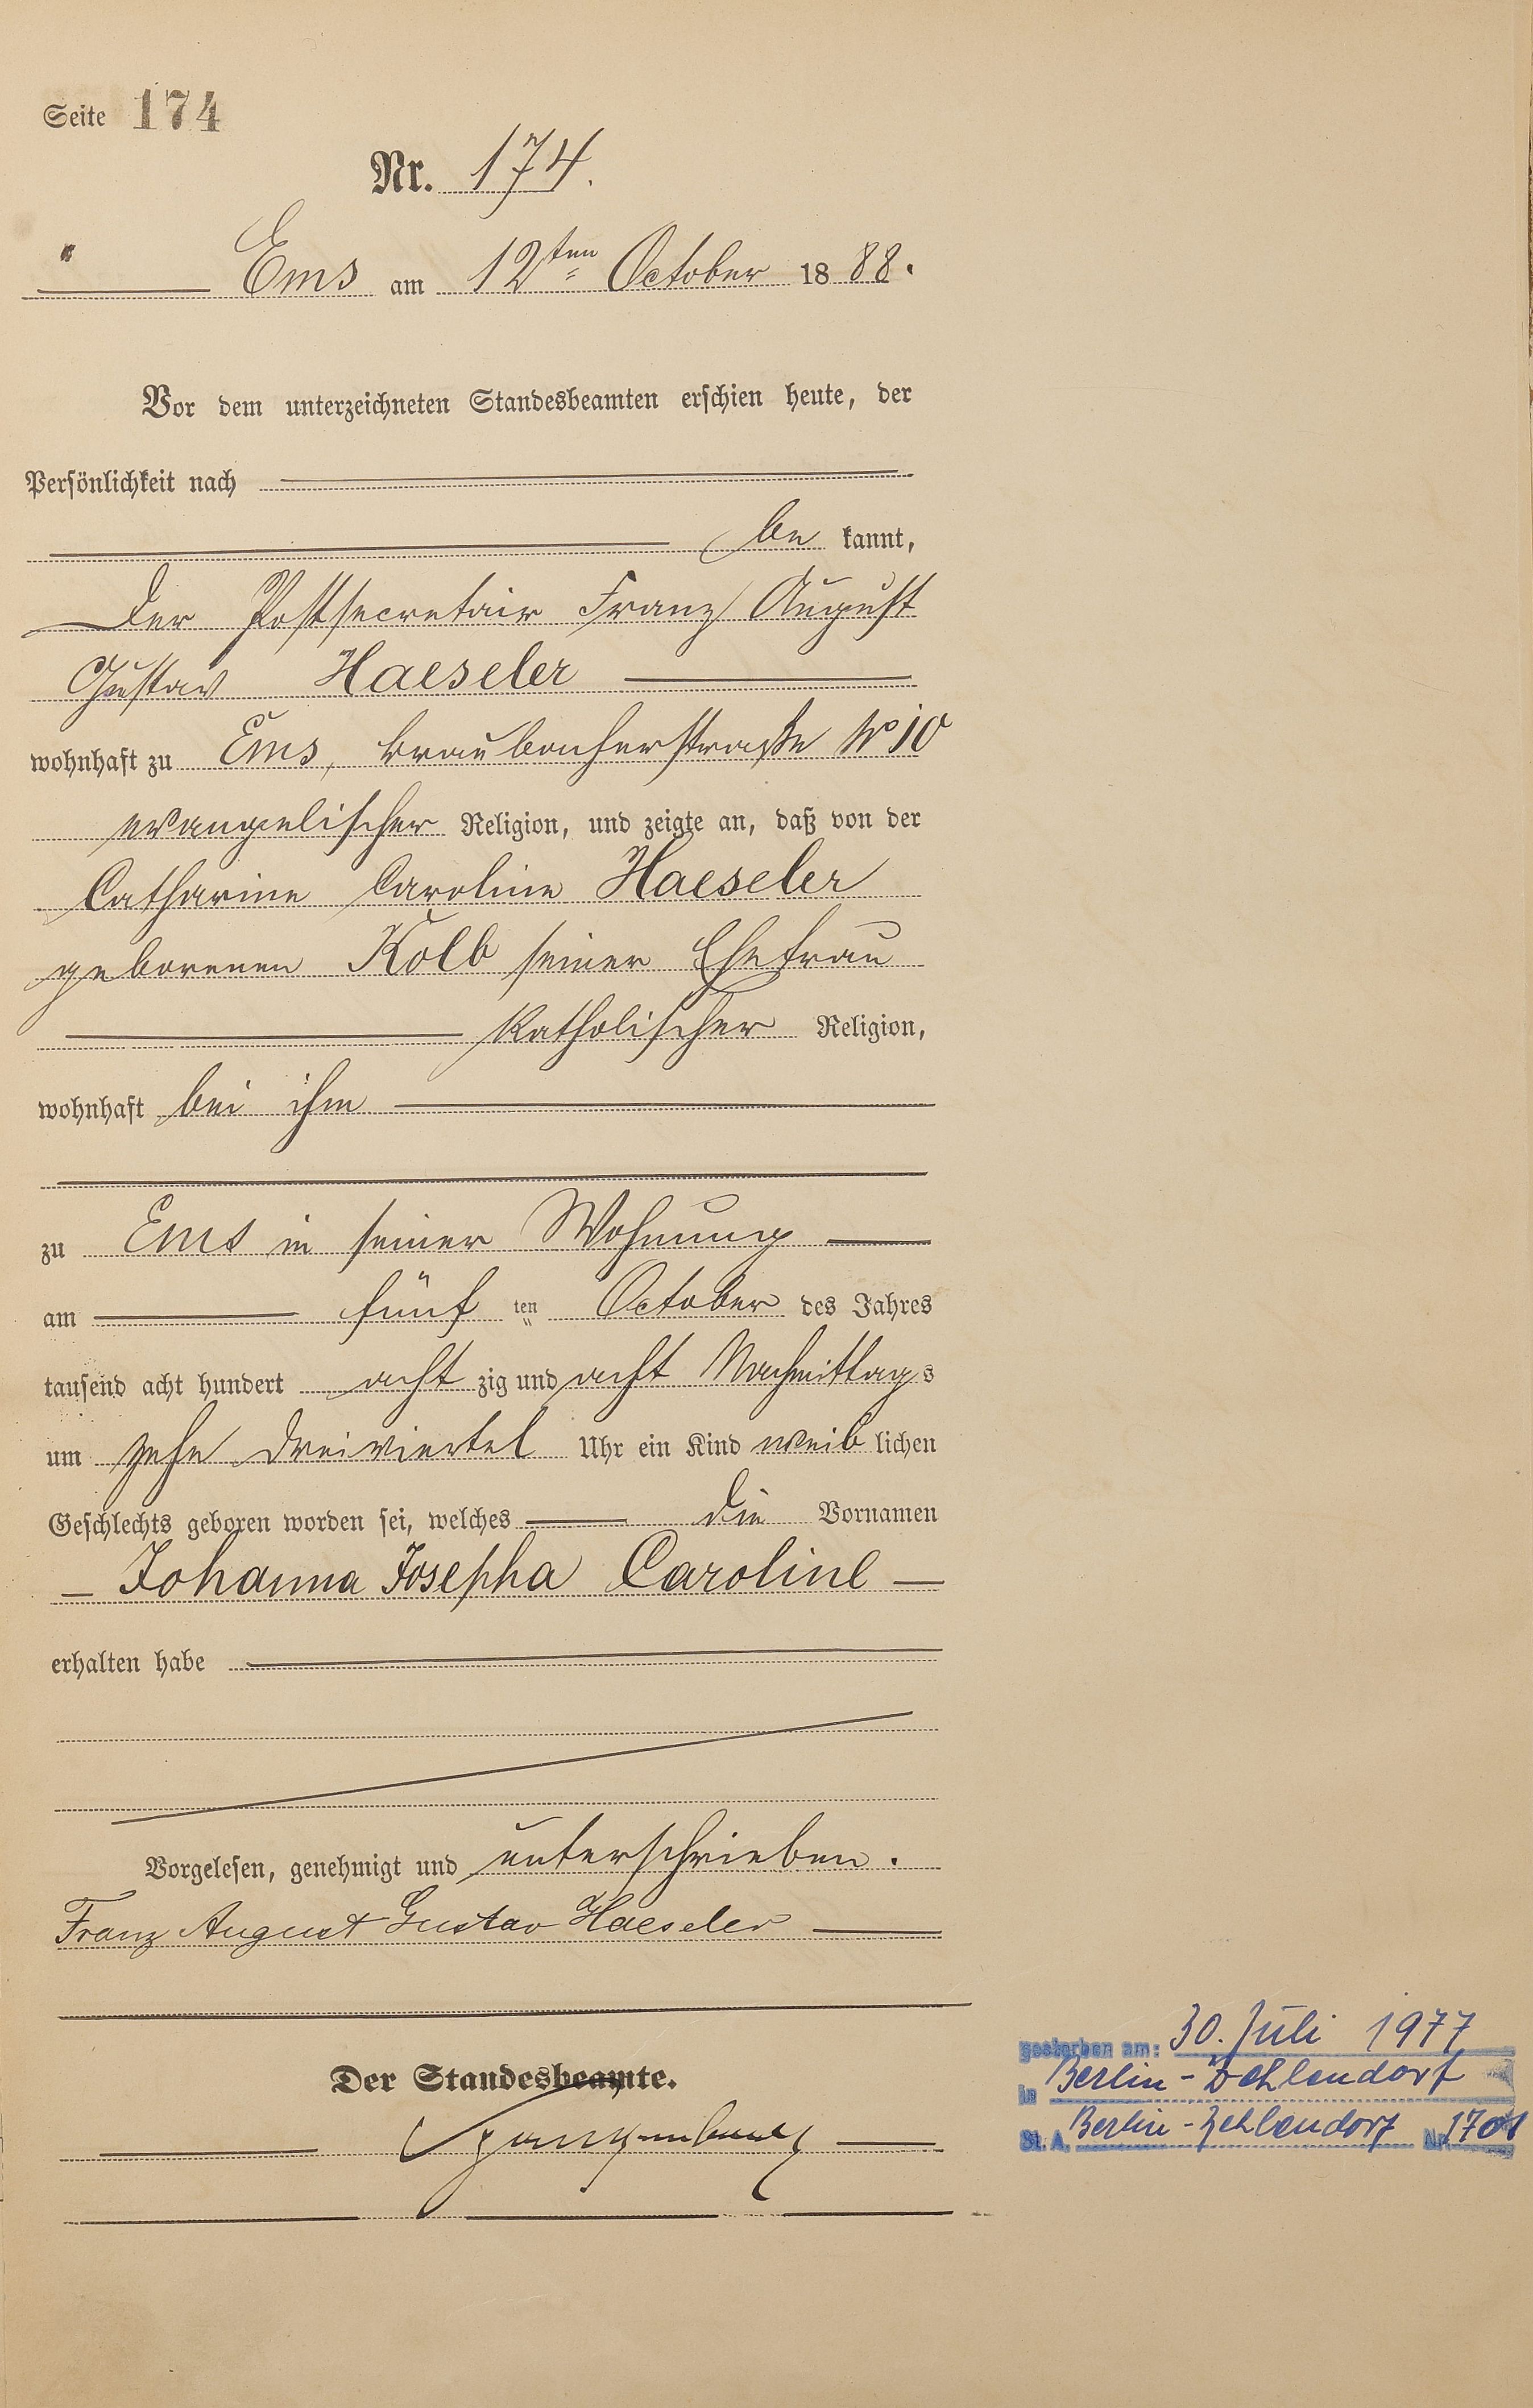 Seite 174
Nr. 174.
Ems am 12ten October 1888.
Vor dem unterzeichneten Standesbeamten erschien heute, der
Persönlichkeit nach
be kannt,
der Postsecretair Franz August
Gustav Haeseler
wohnhaft zu Ems, Braubacherstraße No 10
evangelischer Religion, und zeigte an, daß von der
Catharine Caroline Haeseler
geborenen Kolb seiner Ehefrau
katholischer Religion,
wohnhaft bei ihm
zu Ems in seiner Wohnung
am fünf ten October des Jahres
tausend acht hundert acht zig und acht Nachmittags
um zehn dreiviertel Uhr ein Kind weib lichen
Geschlechts geboren worden sei, welches die Vornamen
Johanna Josepha Caroline
erhalten habe
Vorgelesen, genehmigt und unterschrieben.
Franz August Gustav Haeseler
Der Standesbeamte.
gestorben am: 30. Juli 1977
in Berlin-Zehlendorf
St. A. Berlin-Zehlendorf Nr. 1701